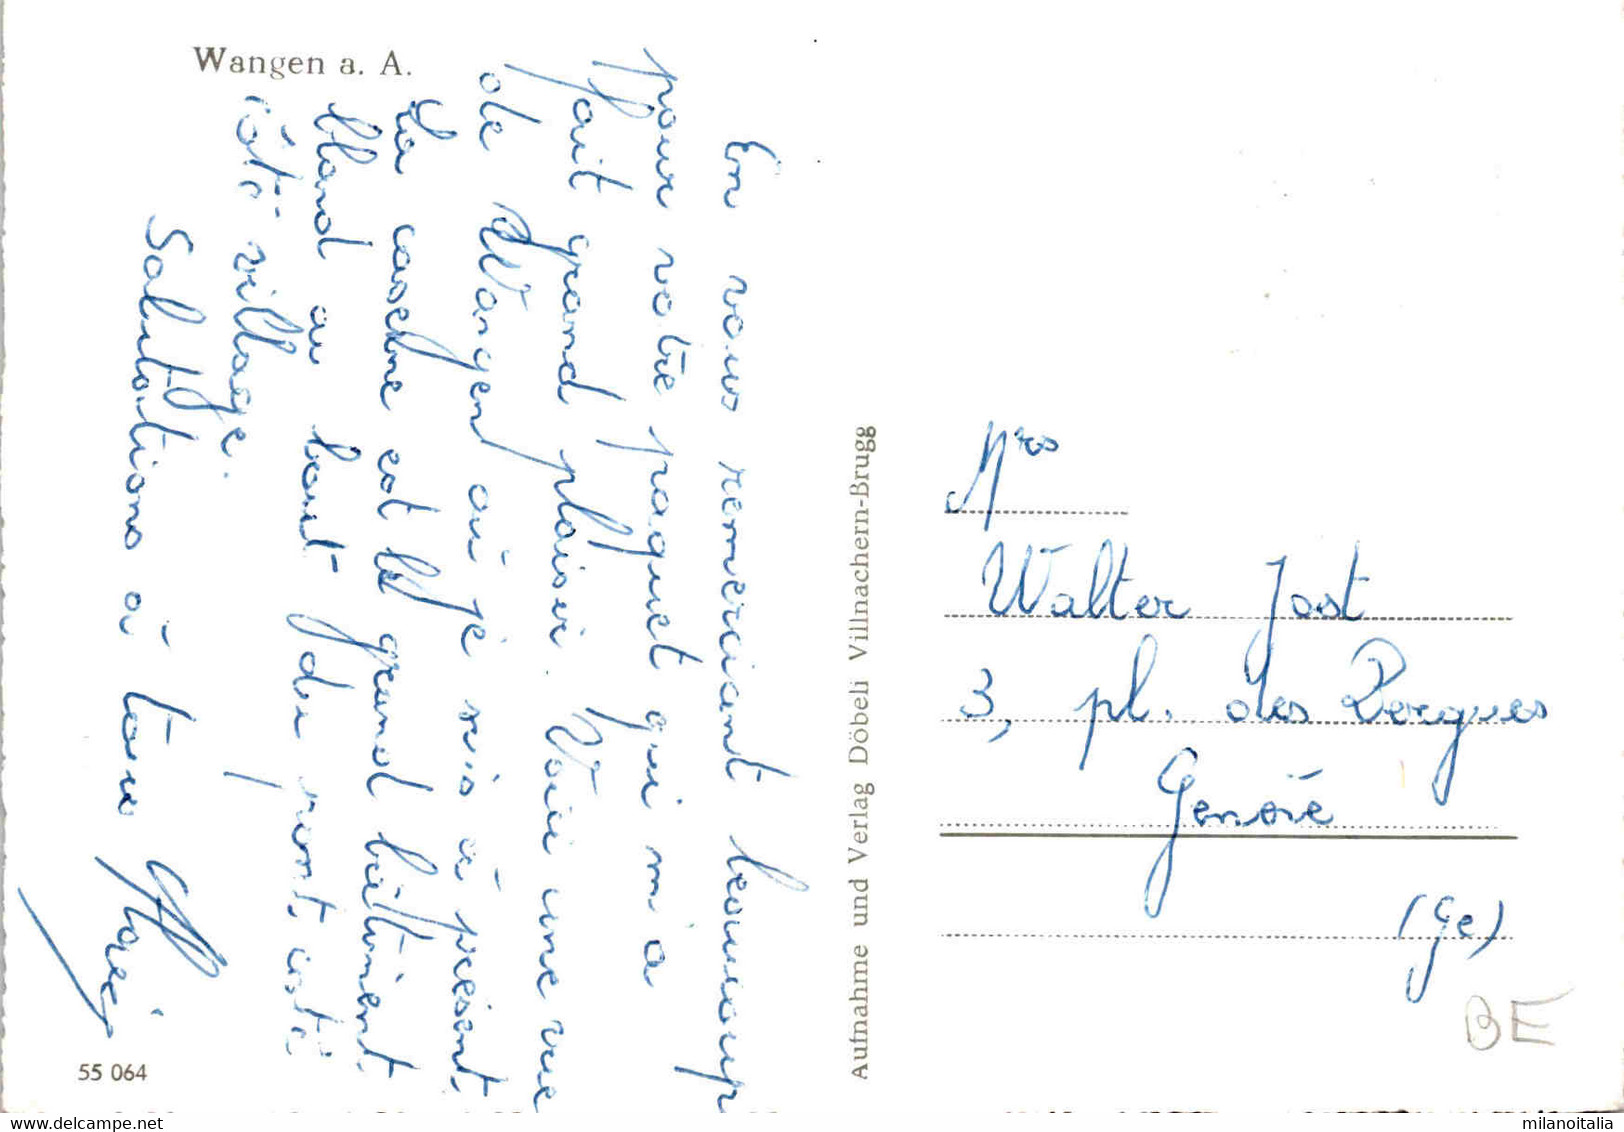 Wangen a. A.
En vous remerciant beaucoup
pour votre paquet qui m'a
fait grand plaisir. Voici une vue
de Wangen où je suis à présent,
La caserne est le grand bâtiment
bland au bout du pont, côté
côté village.
Salutations à tous
55 064
Aufnahme und Verlag Döbeli Villnachern-Brugg
Mrs
Walter Jost
3, pl. des Bergues
Genève
(Ge)
BE
delcampe.net
milanoitalia